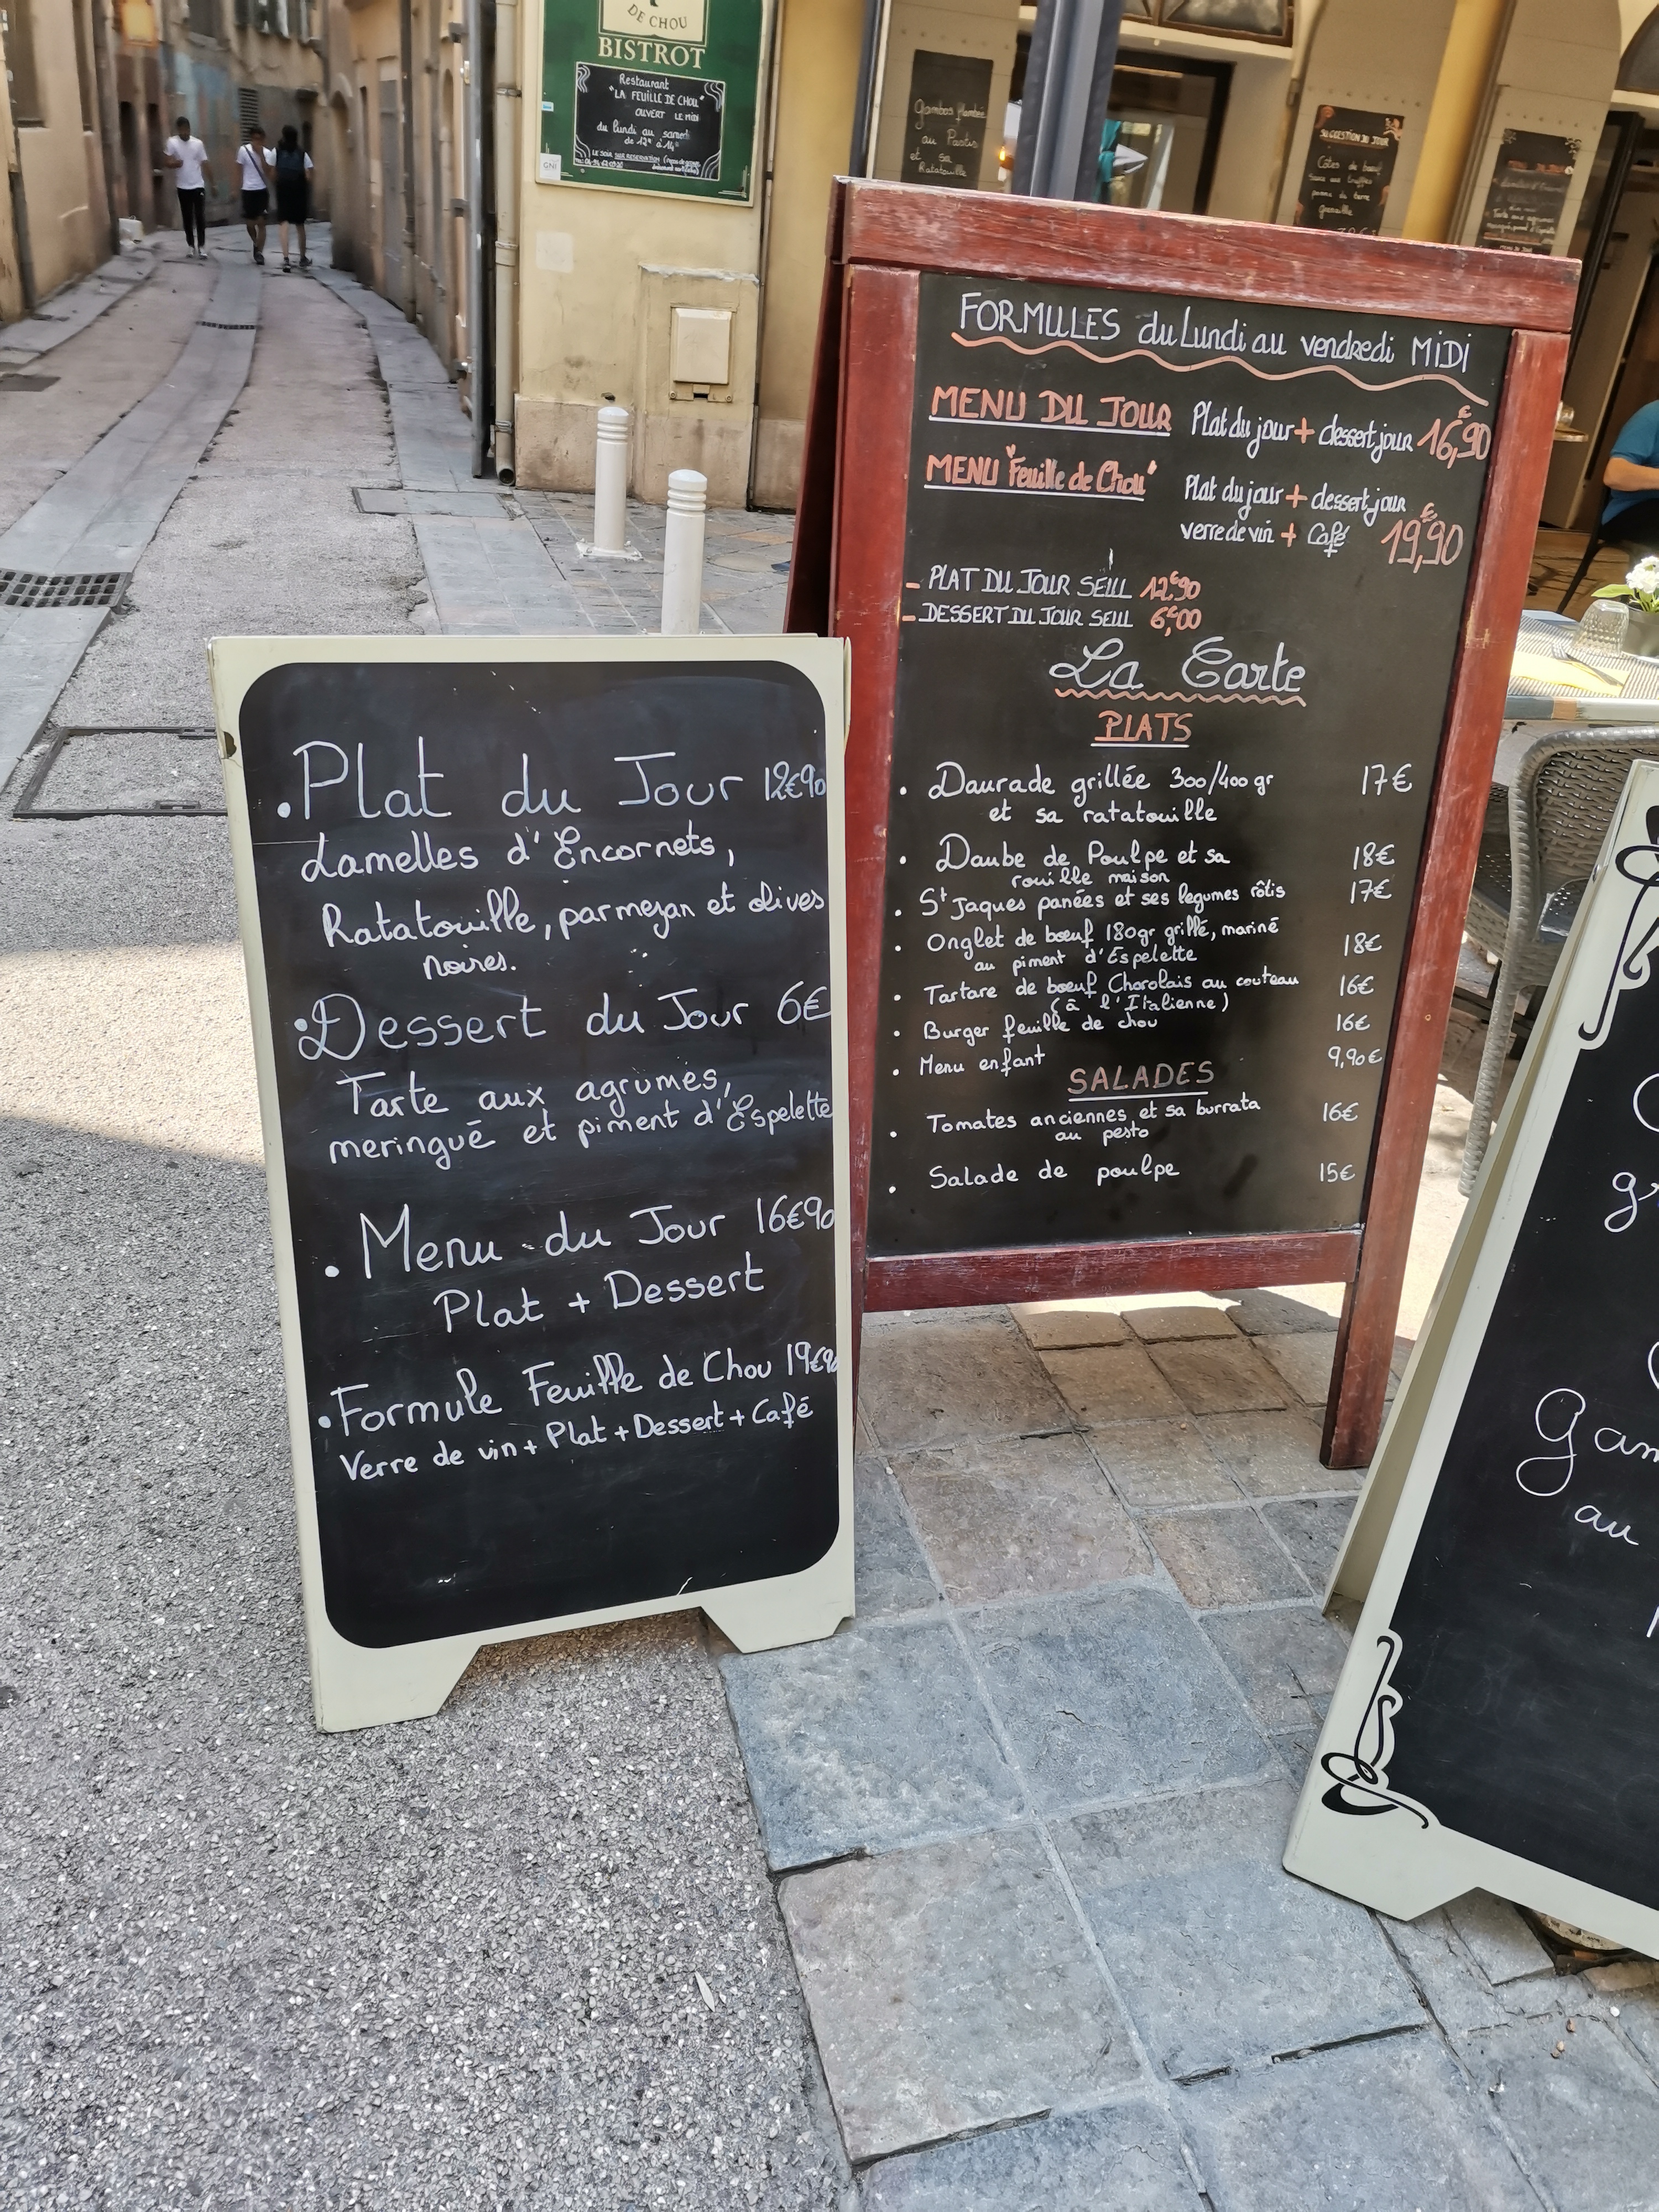 DE CHOU
BISTROT
Restaurant
"LA FEUILLE DE CHOU"
OUVERT LE MIDI
du lundi au samedi
de 12h à 14h
LE SOIR SUR RESERVATION
GNI
Gambas flambée
au Pastis
et sa
Ratatouille
SUGGESTION DU JOUR
Côtes de boeuf
pomme de terre
grenaille
FORMULES du Lundi au vendredi MIDI
MENU DU JOUR Plat du jour + dessert jour 16,90€
MENU "Feuille de Chou" Plat du jour + dessert jour
verre de vin + Café 19,90€
- PLAT DU JOUR SEUL 12€90
- DESSERT DU JOUR SEUL 6€00
La Carte
PLATS
• Daurade grillée 300/400 gr 17€
et sa ratatouille
• Daube de Poulpe et sa 18€
rouille maison
• St Jaques panées et ses legumes rôtis 17€
• Onglet de bœuf 180gr grillé, mariné 18€
au piment d'Espelette
• Tartare de bœuf Charolais au couteau 16€
(à l'Italienne)
• Burger feuille de chou 16€
• Menu enfant 9,90€
SALADES
• Tomates anciennes et sa burrata 16€
au pesto
• Salade de poulpe 15€
• Plat du Jour 12€90
Lamelles d'Encornets,
Ratatouille, parmezan et olives
noires.
• Dessert du Jour 6€
Tarte aux agrumes,
meringué et piment d'Espelette
• Menu du Jour 16€90
Plat + Dessert
• Formule Feuille de Chou 19€90
Verre de vin + Plat + Dessert + Café
au